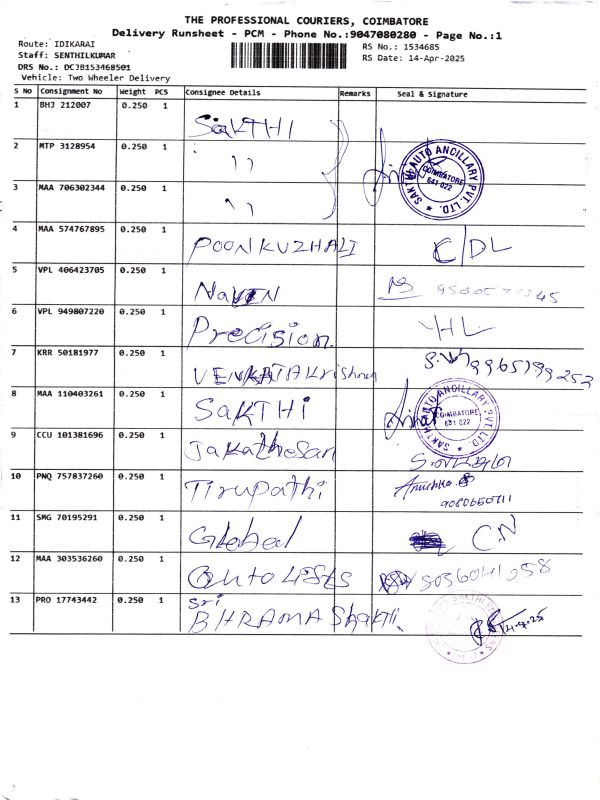 THE PROFESSIONAL COURIERS, COIMBATORE
Delivery Runsheet - PCM - Phone No.:9047080280 - Page No.:1
Route: IDIKARAI
RS No.: 1534685
Staff: SENTHILKUMAR
RS Date: 14-Apr-2025
DRS No.: DCJB153468501
Vehicle: Two Wheeler Delivery
S No Consignment No Weight PCS Consignee Details Remarks Seal & Signature
1 BHJ 212007 0.250 1 SaKTHI
2 MTP 3128954 0.250 1 ''
SAKTHI AUTO ANCILLARY PVT. LTD. COIMBATORE 641 022
3 MAA 706302344 0.250 1 ''
4 MAA 574767895 0.250 1 POONKUZHALI C/DL
5 VPL 406423705 0.250 1 NaVIN
6 VPL 949807220 0.250 1 Precision HL
7 KRR 50181977 0.250 1 VENKATAKrishnan
8 MAA 110403261 0.250 1 SaKTHI
SAKTHI AUTO ANCILLARY PVT. LTD. COIMBATORE 641 022
9 CCU 101381696 0.250 1
10 PNQ 757837260 0.250 1 Tirupathi Anushka
11 SMG 70195291 0.250 1 Global CN
12 MAA 303536260 0.250 1
13 PRO 17743442 0.250 1 Sri
BHRAMA Shakti